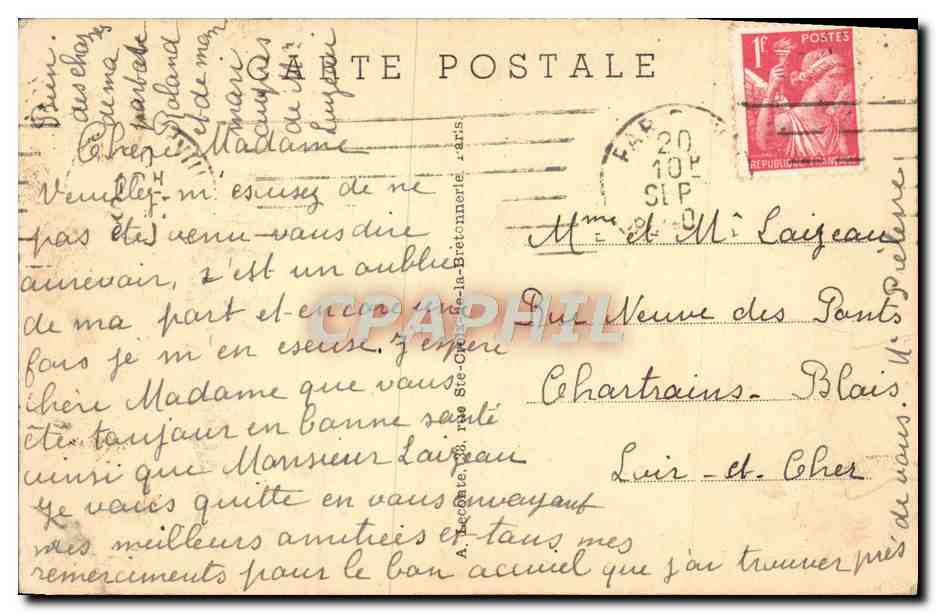 CARTE POSTALE
Bien
des choses
de ma
part de
Roland
et de mon
mari
Chère Madame
Veuillez m'escusez de ne
pas être venu vous dire
aurevoir, s'est un oublie
de ma part et encore une
fois je m'en escuse. J'espère
chère Madame que vous
ête toujour en bonne santé
ainsi que Monsieur Laizeau
Je vous quitte en vous envoyant
mes meilleurs amitiées et tous mes
remerciments pour le bon acceuil que j'ai trouver près
de vous.
A. Leconte, 38, rue Ste-Croix-de-la-Bretonnerie, Paris
1F POSTES
REPUBLIQUE FRANÇAISE
20
10H
SEP
Mme et Mr Laizeau
Rue Neuve des Ponts
Chartrains - Blois
Loir-et-Cher
CPAPHIL